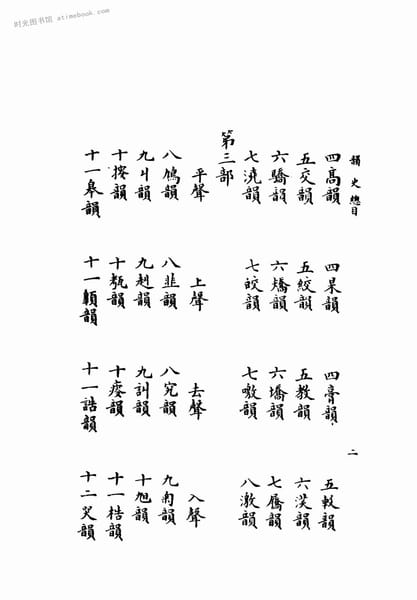 时光图书馆 atimebook.com
韻史總目 二
四高韻 四杲韻 四膏韻
五交韻 五絞韻 五教韻 五較韻
六驕韻 六矯韻 六撟韻 六韻
七澆韻 七皎韻 七噭韻 七韻 八激韻
第三部
平聲 上聲 去聲 入聲
八鳩韻 八韭韻 八究韻 九匊韻
九丩韻 九赳韻 九訆韻 十旭韻
十韻 十韻 十韻 十一梏韻
十一皋韻 十一韻 十一誥韻 十二韻